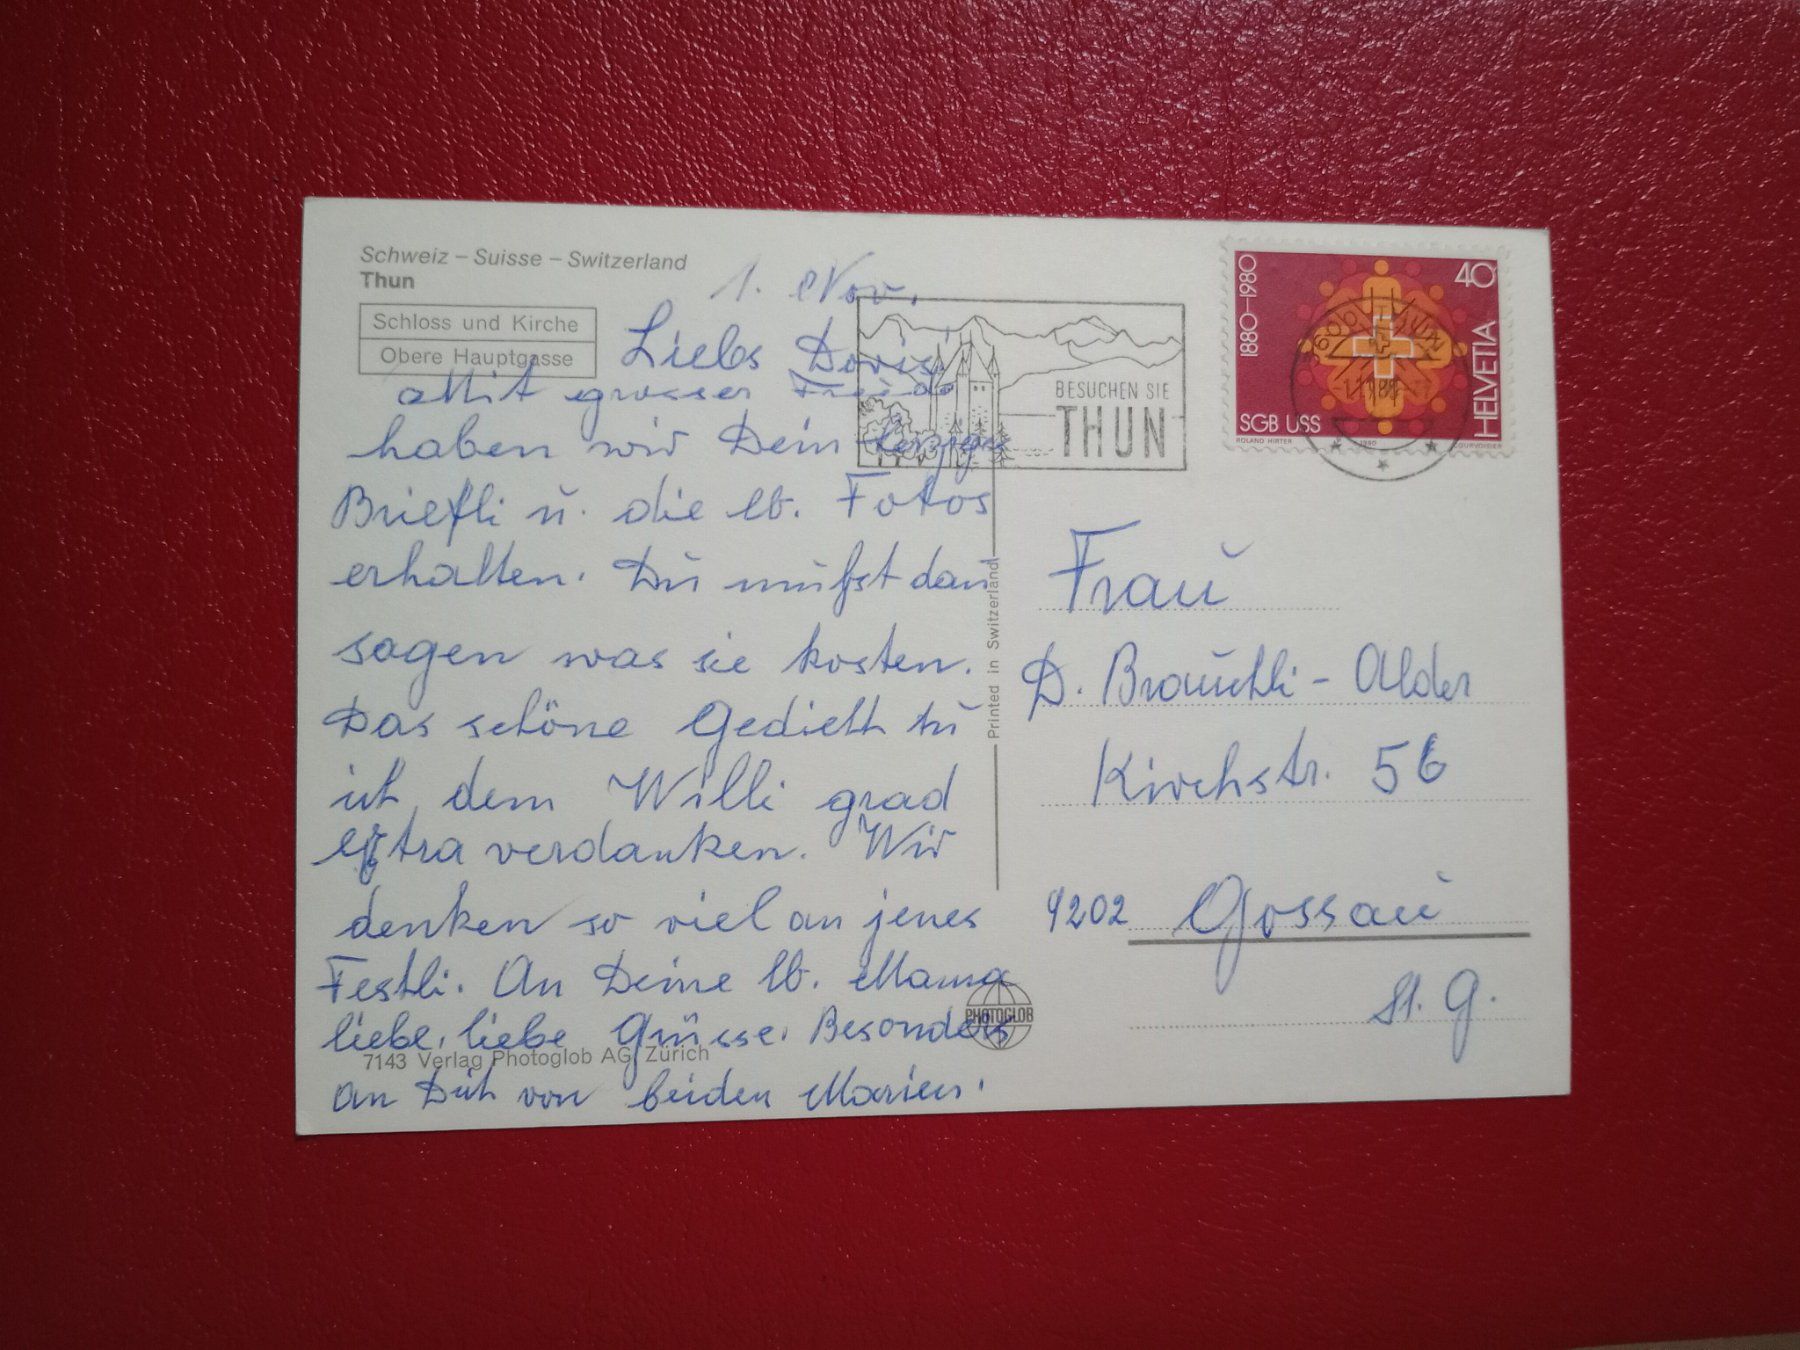 Schweiz – Suisse – Switzerland
Thun
Schloss und Kirche
Obere Hauptgasse
1. Nov.
Liebs Doris!
Mit grosser Freude
haben wir Dein herziges
Briefli u. die lb. Fotos
erhalten. Du mußst dan
sagen was sie kosten.
Das schöne Gedicht tu
ich dem Willi grad
extra verdanken. Wir
denken so viel an jenes
Festli. An Deine lb. Mama
liebe, liebe Grüsse. Besonders
an Dich von beiden Marien.
7143 Verlag Photoglob AG, Zürich
Printed in Switzerland
PHOTOGLOB
BESUCHEN SIE
THUN
1880–1980
40
HELVETIA
SGB USS
ROLAND HIRTER
1980
COURVOISIER
THUN
Frau
D. Brauchli-Alder
Kirchstr. 56
9202 Gossau
St. G.